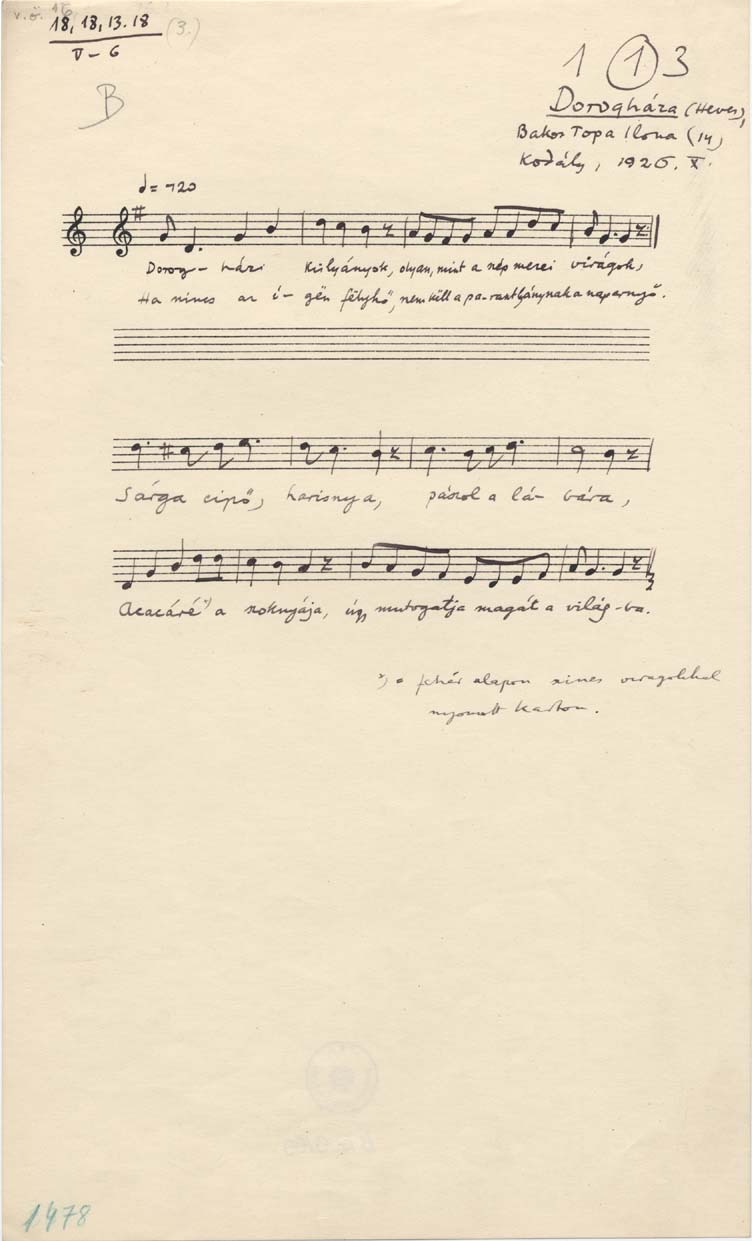 v.ö.
18, 18, 13. 18 (3.)
V – 6
B
1 1 3
Dorogháza (Heves),
Bakos Topa Ilona (14)
Kodály, 1926. X.
= 120
Dorog – házi kislyányok, olyan, mint a nép mezei virágok,
Ha nincs az é – gën fëlyhő, nem këll a pa-raszt lánynak a napernyő.
Sárga cipő, harisnya, pászol a lá- bára,
Acacáré *) a szoknyája, úgy mutogatja magát a világ-ba.
*) = fehér alapon színes virágokkal
nyomott karton.
1478